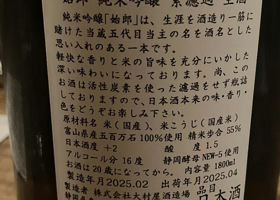 始郎 純米吟醸 素濾過 生酒
純米吟醸「始郎」は、生涯を酒造り一筋に
賭けた当蔵五代目当主の名を酒名とした
思い入れのある一本です。
軽快な香りと米の旨味を充分にいかした
深い味わいになっております。尚、この
お酒は活性炭素を使った濾過をせず瓶詰
しておりますので、日本酒本来の味・香り・
色をどうぞお楽しみ下さい。
原材料名 米(国産)、米こうじ(国産米)
富山県産五百万石100%使用 精米歩合55%
日本酒度+2 酸度1.5
アルコール分16度 静岡酵母NEW-5使用
お酒は20歳になってから。 内容量1800ml
製造年月2025.02 出荷年月2025.04
製造者 株式会社大村屋酒造場
品目 日本酒
静岡県